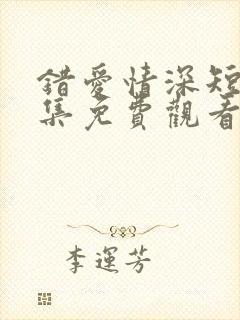 錯愛情深短
集免費觀看
李運芳